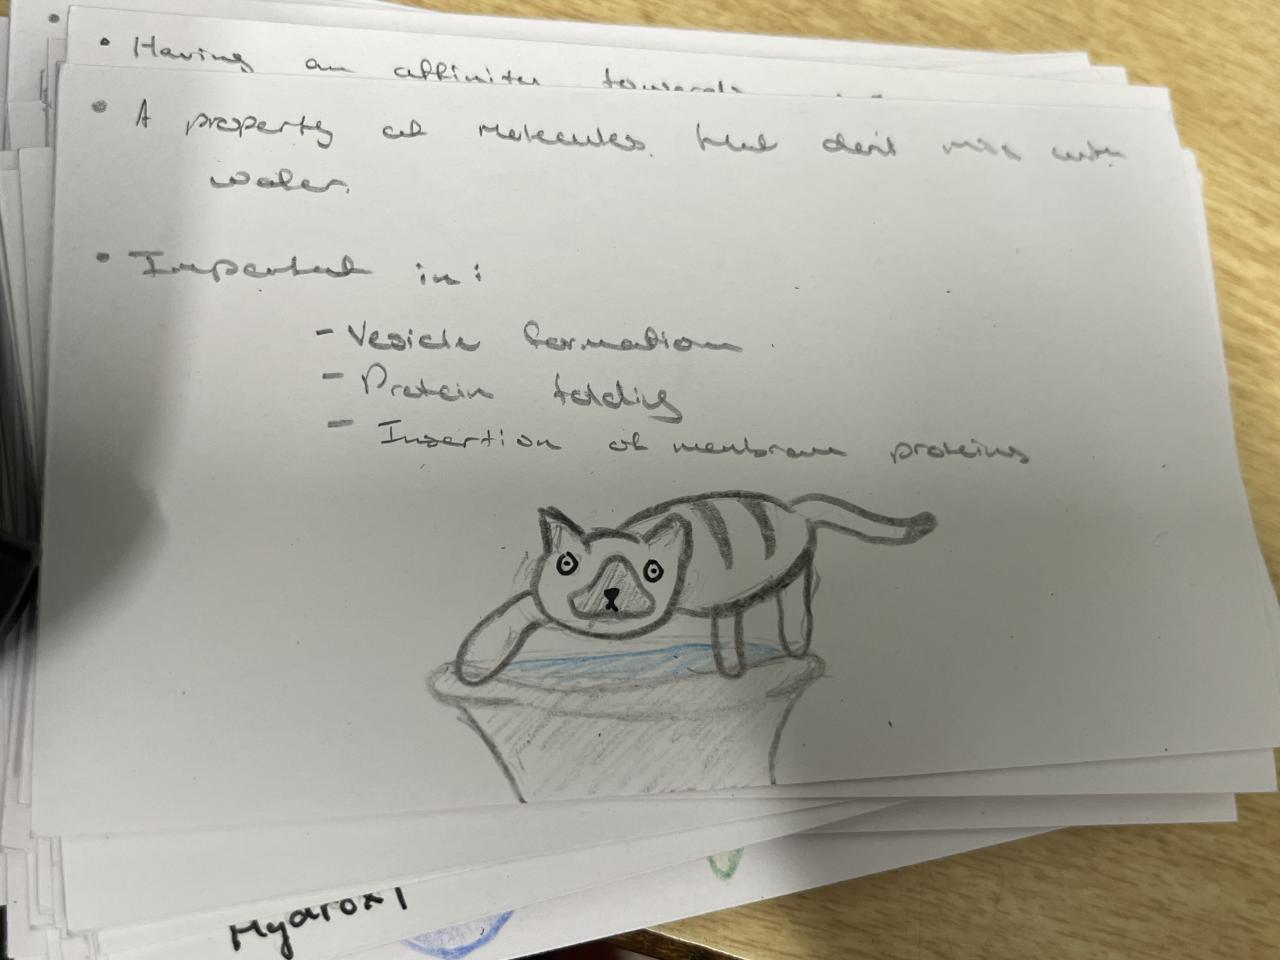 • Having an affinity towards
• A property of molecules that don't mix with
water.
• Important in:
- Vesicle formation
- Protein folding
- Insertion of membrane proteins
Hydroxyl